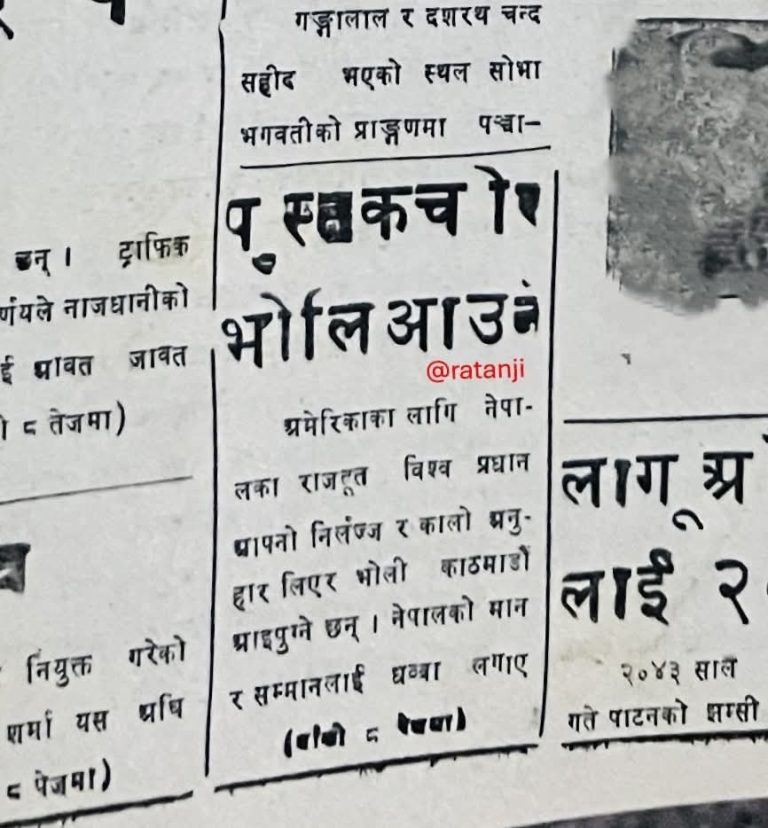 गङ्गालाल र दशरथ चन्द
सहीद भएको स्थल सोभा
भगवतीको प्राङ्गणमा पञ्चा-
पुस्तकचोर
भोलि आउने
@ratanji
अमेरिकाका लागि नेपा-
लका राजदूत विश्व प्रधान
आपनो निर्लज्ज र कालो अनु-
हार लिएर भोली काठमाडौं
आइपुग्ने छन् । नेपालको मान
र सम्मानलाई धब्बा लगाए
(बाँकी ८ पेजमा)
छन् । ट्राफिक
र्णयले नाजधानीको
ई आवत जावत
८ तेजमा)
नियुक्त गरेको
शर्मा यस अघि
८ पेजमा)
लागू अ
लाई २
२०४३ साल
गते पाटनको